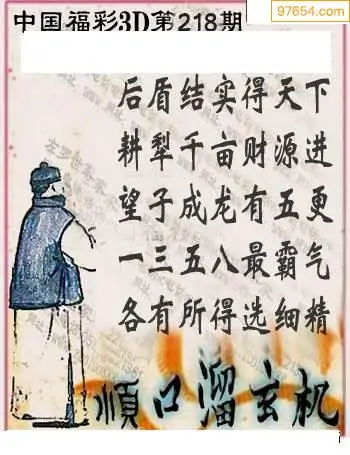 97654.com
中国福彩3D第218期
后盾结实得天下
耕犁千亩财源进
望子成龙有五更
一三五八最霸气
各有所得选细精
順口溜玄机